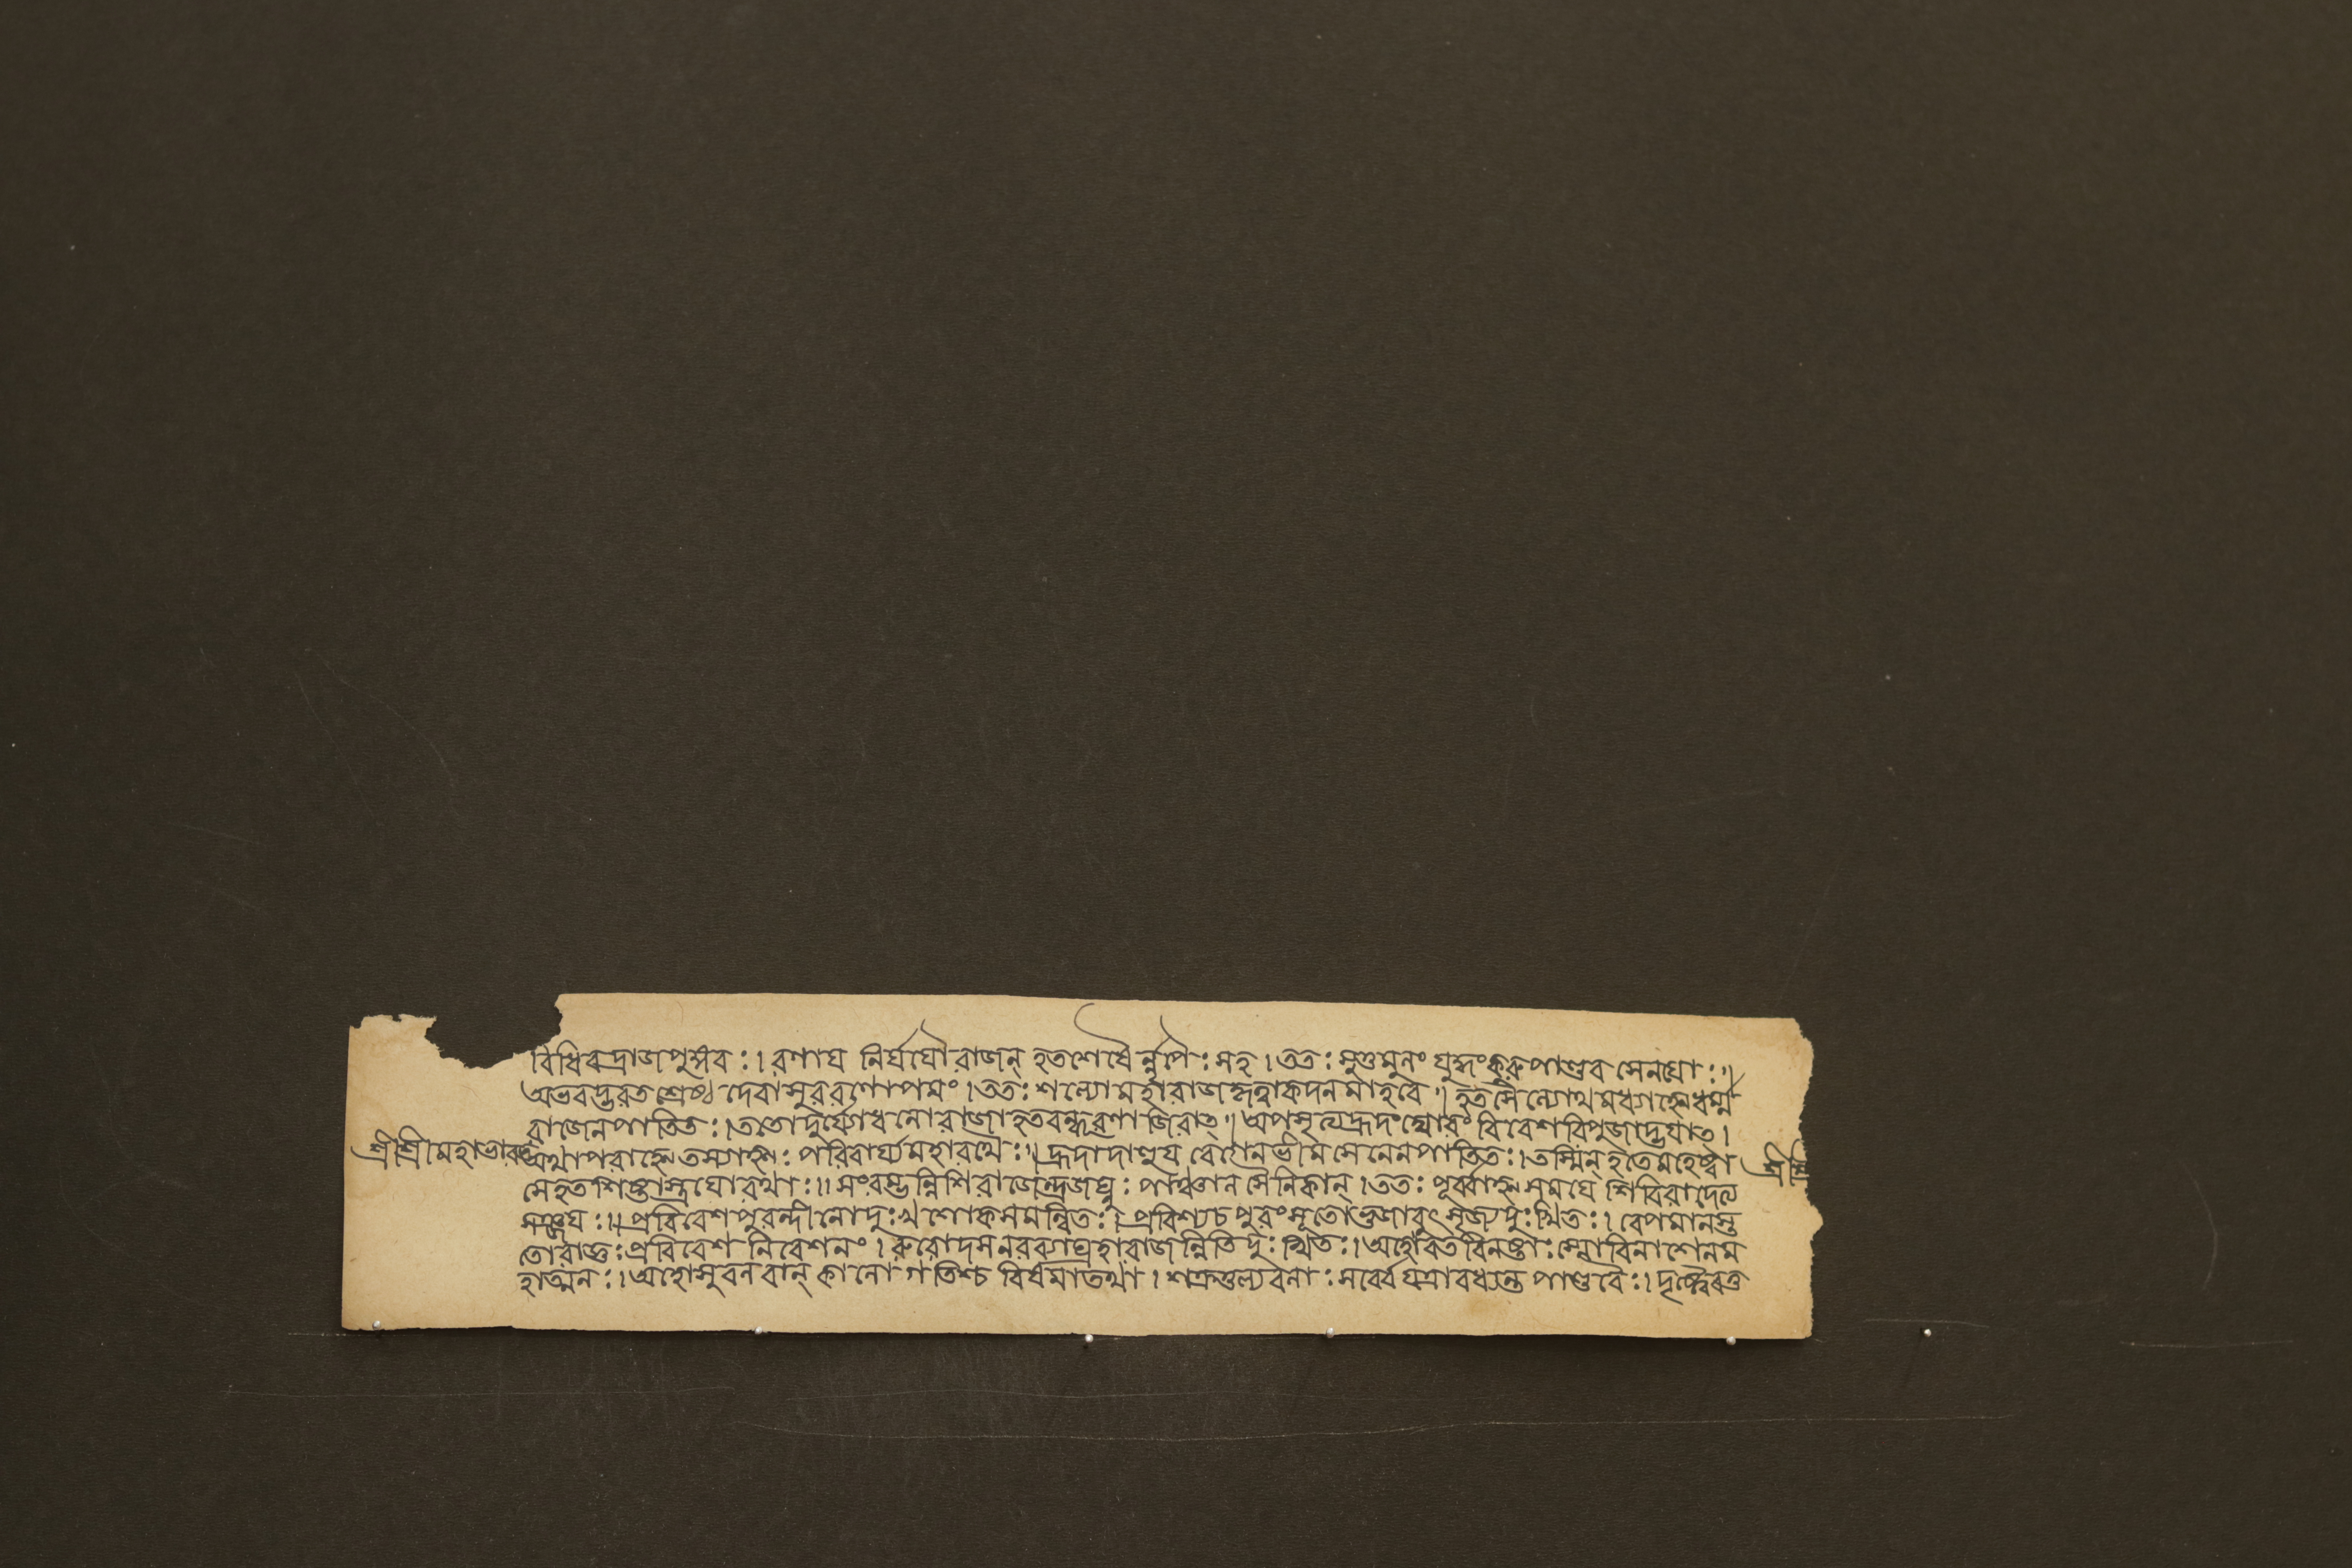 বিধিবদ্রাজপুঙ্গব:। রণায নির্যযৌ রাজন্ হতশেষৈর্ন্নৃপৈ: সহ। তত: সুতুমুলং যুদ্ধং কুরুপাণ্ডব সেনযো:॥
অভবদ্ভরতশ্রেষ্ঠ দেবাসুররণোপমং। তত: শল্যোমহারাজকৃত্বাকদনমাহবে॥ হতসৈন্যোথমধ্যাহ্নেধর্ম্ম
রাজেনপাতিত:। ততোদুর্য্যোধনোরাজাহতবন্ধূরণাজিরাত্॥ অপসৃত্যহ্রদংঘোরং বিবেশবিপুজাদ্ভযাত্।
শ্রীশ্রীমহাভারত
অথাপরাহ্নেতস্যাহ্ন: পরিবার্য্যমহারথৈ:॥ হ্রদাদাহূয বেগেনভীমসেনেনপাতিত:। তস্মিন্ হতেমহেষ্বা
শ্রী
সেহতশিষ্টাস্ত্রযোরথা:॥ সংরম্ভন্নিশিরাজেন্দ্রজঘ্নু: পাঞ্চালসৈনিকান্। তত: পূর্ব্বাহ্নসমযে শিবিরাদেত্য
সঞ্জয:॥ প্রবিবেশপুরন্দীনোদু:খশোকসমন্বিত:। প্রবিশ্যচপুরংসূতোভুজাবুৎসৃজ্যদু:খিত:। বেপমানস্ত
তোরাজ্ঞ: প্রবিবেশ নিবেশনং। রুরোদসনরব্যাঘ্রহারাজন্নিতিদু:খিত:। অহোবতবিনষ্টা: স্মোবিনাশেনম
হাত্মন:। অহোসুবলবান্ কালো গতিশ্চ বিষমাতথা। শক্রতুল্যবলা: সর্ব্বে যত্রাবধ্যন্ত পাণ্ডবৈ:। দৃষ্ট্বৈবত